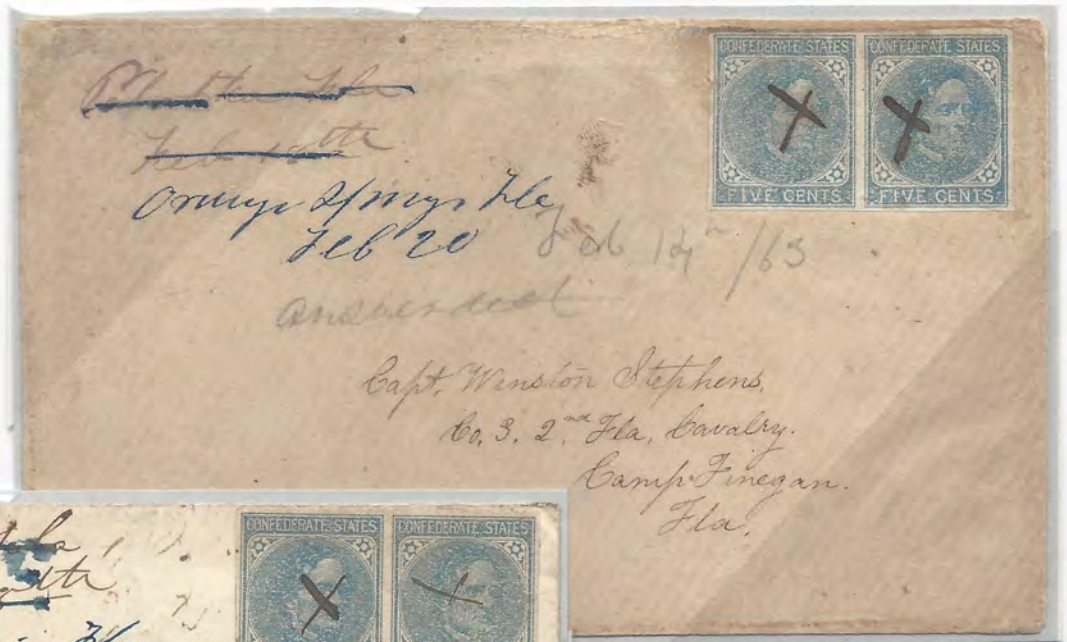 CONFEDERATE STATES CONFEDERATE STATES
FIVE CENTS FIVE CENTS
Fla
Feb th
Orange Springs Fla
Feb 20
Feb 14th /63
answered
Capt. Winston Stephens,
Co. 2nd Fla, Cavalry.
Camp Finegan.
Fla.
CONFEDERATE STATES CONFEDERATE STATES
Fla